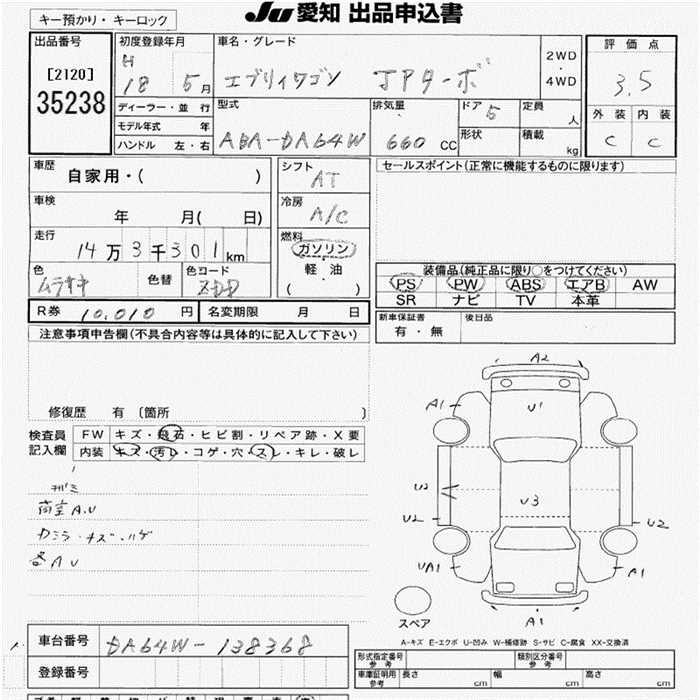 キー預かり・キーロック
JU 愛知 出品申込書
出品番号
[2120]
35238
初度登録年月
H 18 5 月
ディーラー・並 行
モデル年式 年
ハンドル 左・右
車名・グレード
エブリィワゴン JPターボ
2WD
・
4WD
型式
ABA-DA64W
排気量
660 CC
ドア 5
形状
定員
人
積載
kg
評 価 点
3.5
外 装 内 装
C C
車歴
自家用・( )
車検
年 月( 日)
走行
14万3千301km
色
ムラサキ
色替
色コード
シフト
AT
冷房
A/C
燃料
ガソリン
・
軽・油
( )
セールスポイント(正常に機能するものに限ります)
装備品(純正品に限り○をつけてください)
PS PW ABS エアB AW
SR ナビ TV 本革
R券 10,010 円
名変期限 月 日
新車保証書
有・無
後日品
注意事項申告欄(不具合内容等は具体的に記入して下さい)
修復歴 有 〔箇所 〕
検査員
記入欄
FW キズ・飛石・ヒビ割・リペア跡・X要
内装 キズ・汚レ・コゲ・穴・スレ・キレ・破レ
荷室A.U
カミラ・キズ・ハゲ
各AU
A2
A1
U1
U2
U3
U2
U2
UA1
A1
A1
スペア
A-キズ E-エクボ U-凹み W-補修跡 S-サビ C-腐食 XX-交換済
車台番号
DA64W-138368
登録番号
形式指定番号
参 考
類別区分番号
参 考
車庫証明用
参考
長さ cm
幅 cm
高さ cm